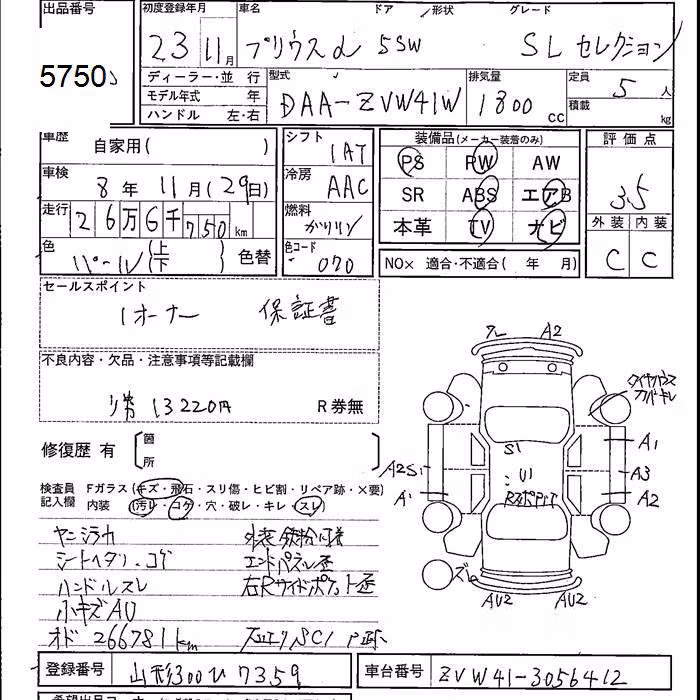 出品番号 初度登録年月 車名 ドア 形状 グレード
5750 23 11月 プリウスα 5SW SL セレクション
ディーラー・並 行 型式 排気量 定員 5 人
モデル年式 年 DAA-ZVW41W 1800 cc 積載 kg
ハンドル 左・右
車歴 自家用( ) シフト 1AT 装備品(メーカー装着のみ) 評価点
車検 8年 11月(29日) 冷房 AAC PS PW AW 3.5
走行 26万6千750km 燃料 ガソリン SR ABS エアB 外装 内装
色 パール (上 下) 色替 色コード 070 本革 TV ナビ C C
NOx 適合・不適合( 年 月)
セールスポイント
1オーナー 保証書
不良内容・欠品・注意事項等記載欄
リ券 13220円 R券無
修復歴 有 箇所
クレ A2
A2S1 S1 U1 A1
A1 A3
A2
AU2 AU2
検査員記入欄 Fガラス(キズ・飛石・スリ傷・ヒビ割・リペア跡・×要)
内装 (汚レ・コゲ・穴・破レ・キレ・スレ)
シートヘタリ、コゲ エンドパネル歪
ハンドルスレ 右Rサイドポケット歪
小キズAU
オド 266781km
登録番号 山形300ひ7359 車台番号 ZVW41-3056412